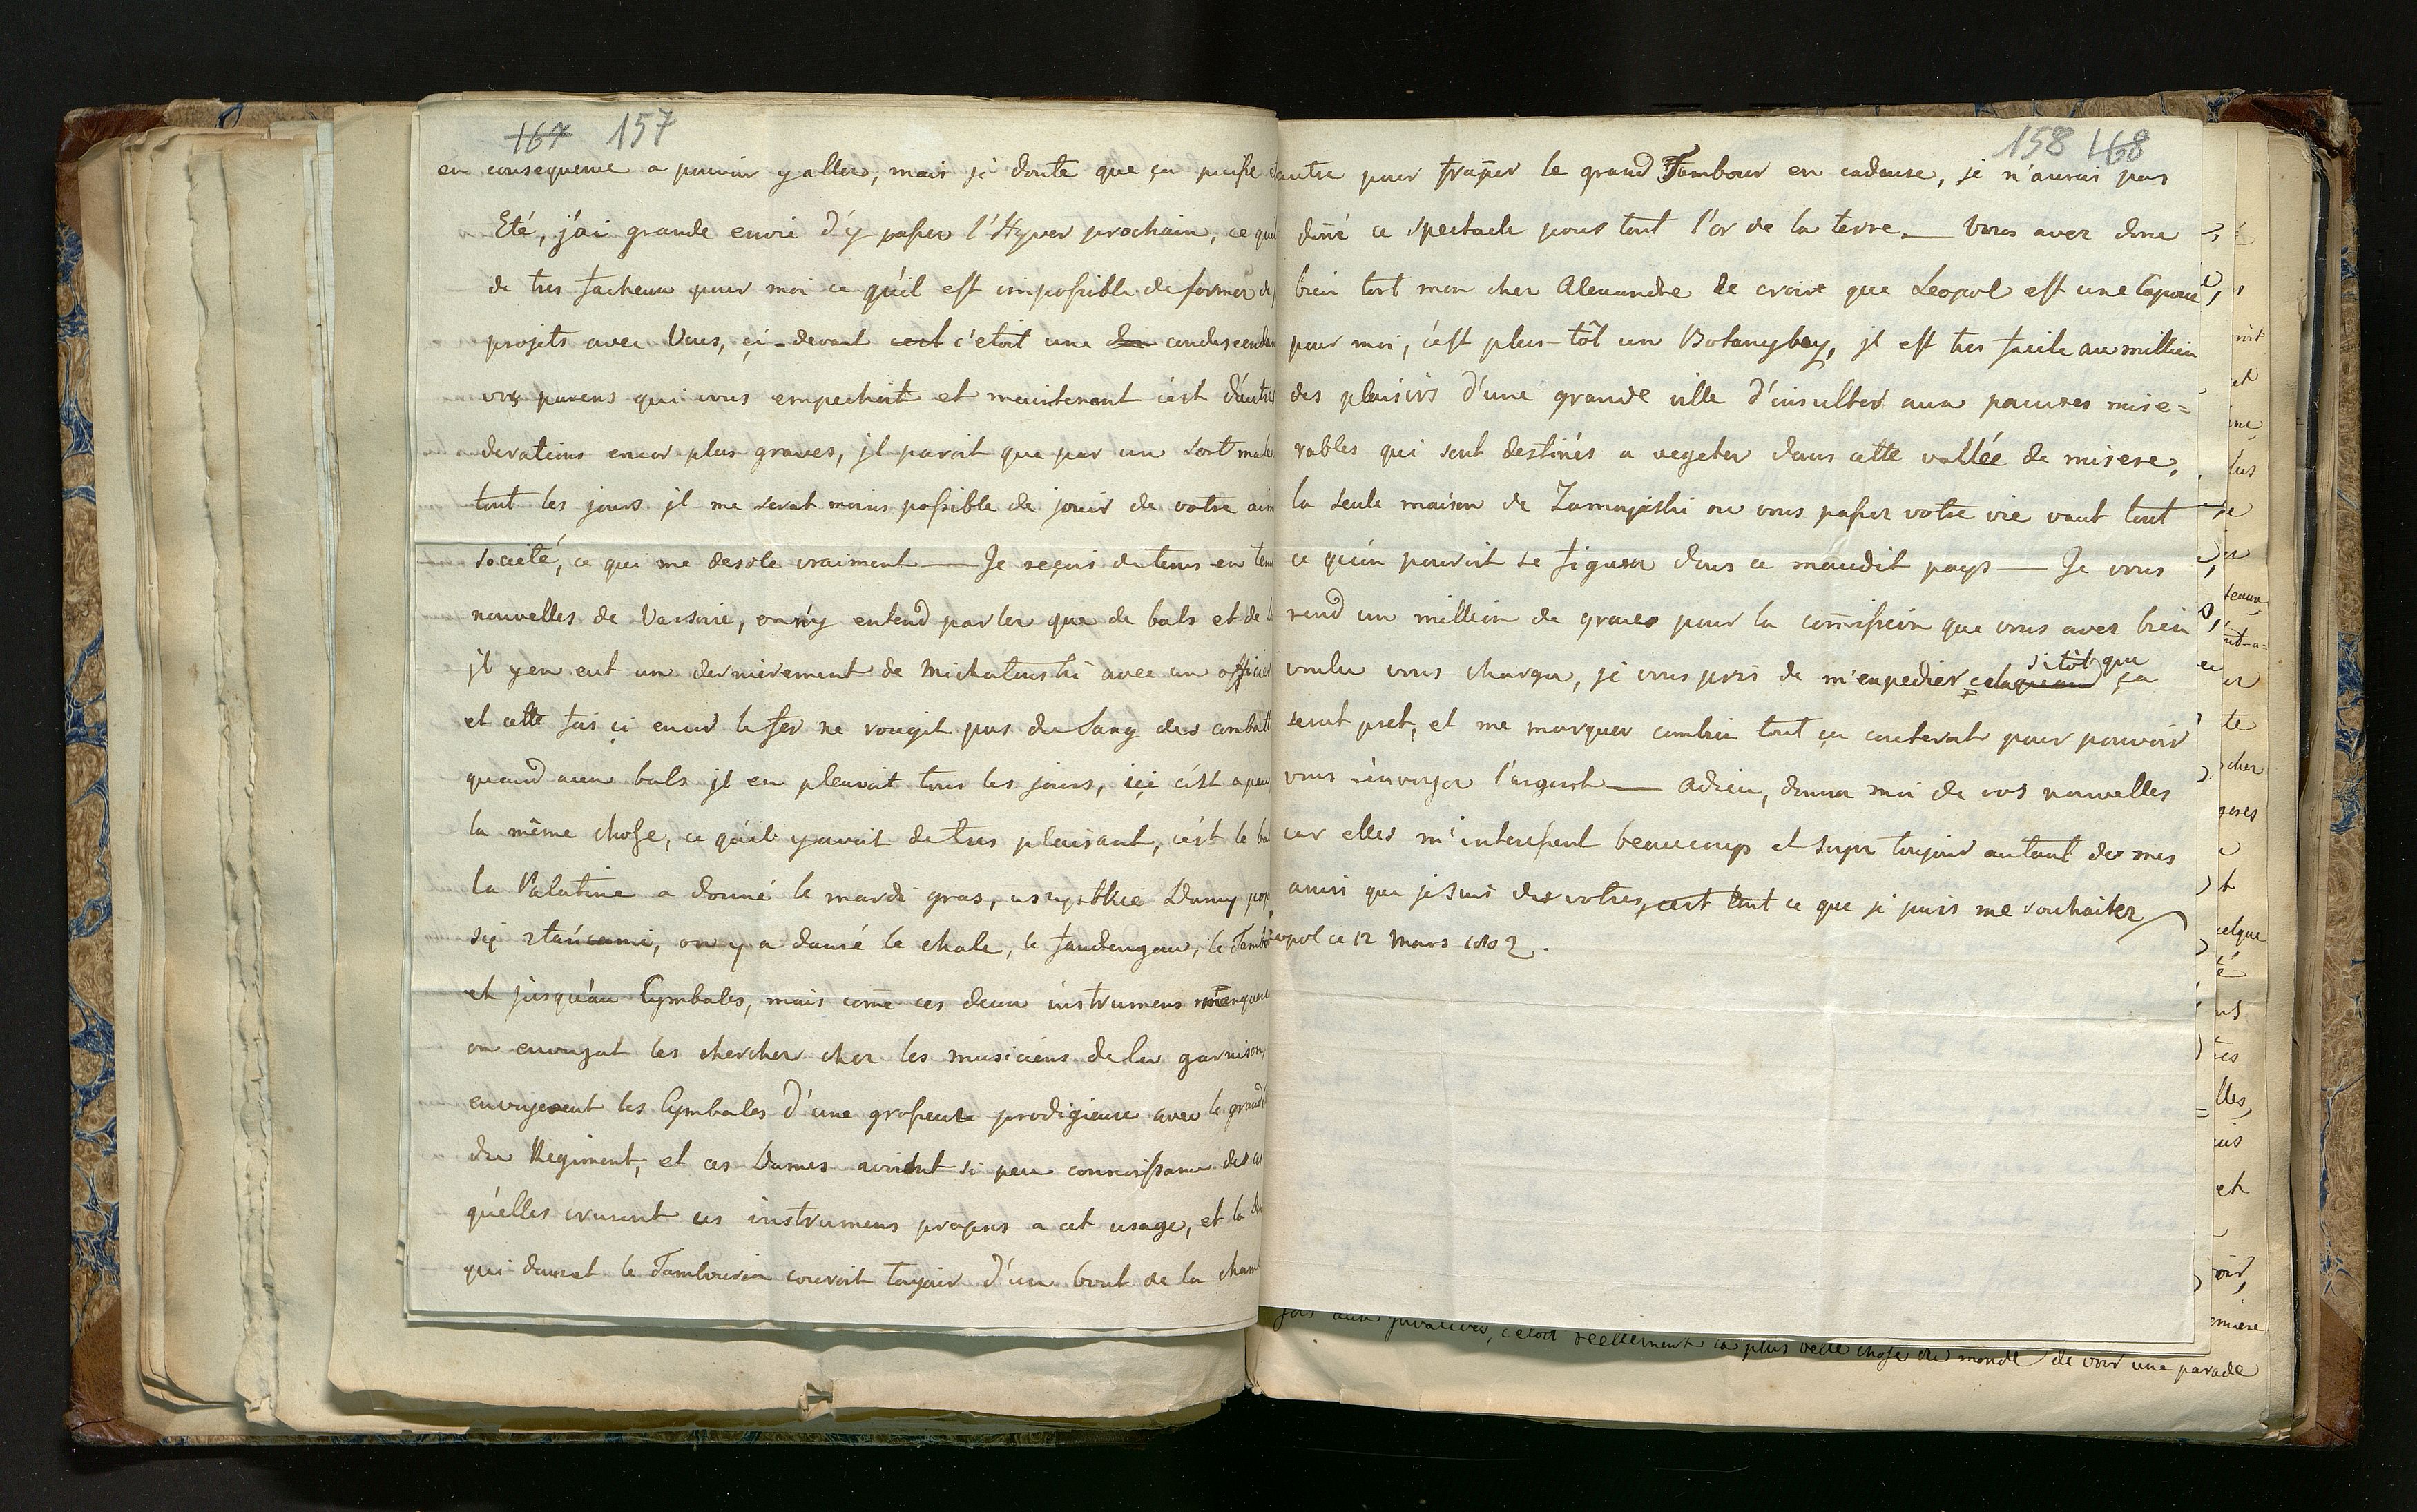 167 157
en consequence a pouvoir y aller, mais je doute que ça puisse
Eté, j'ai grande envie d'y passer l'Hyver prochain, ce
de tres facheux pour moi ce qu'il est impossible de former
projets avec Vous, çi-devant c'etoit une
vos parens qui vous empechoit et maintenant c'est d'autres
derations encor plus graves, jl paroit que par un sort
tout les jours jl me serat moins possible de jouir de votre
societé, ce qui me desole vraiment — Je reçois de tems en
nouvelles de Varsovie, on n'y entend parler que de bals et de
jl y en eut un dernierement de Michalowski avec un officier
et cette fois çi encor le fer ne rougit pas du sang des
quand aux bals jl en pleuvoit tous les jours, içi c'est a peu
la même chose, ce qu'il y avoit de tres plaisant, c'est le
la Palatine a donné le mardi gras, wszystkie Damy
się, on y a dansé le chale, le fandengau, le
et jusqu'au Cymbales, mais come ces deux instrumens
on envoyat les chercher chez les musiciens de la garnison,
envoyerent les Cymbales d'une grosseur prodigieuse avec le grand
du Regiment, et ces Dames avoient si peu connoissance des
qu'elles crurent ces instrumens propres a cet usage, et la
qui dansat le Tambourin couroit toujour d'un bout de la
158 168
autre pour fraper le grand Tambour en cadense, je n'aurai pas
doné ce spectacle pour tout l'or de la terre. — Vous avez donc
bien tort mon cher Alexandre de croire que Leopol est une Capoue
pour moi, c'est plus-tôt un Botanybey, jl est tres facile au millieu
des plaisirs d'une grande ville d'insulter aux pauvres mise=
rables qui sont destinés a vegeter dans cette vallée de misere,
la seule maison de Zamoyski ou vous passez votre vie vaut tout
ce qu'on pouroit se figurer dans ce maudit pays — Je vous
rend un million de graces pour la comission que vous avez bien
voulu vous charger, je vous pris de m'expedier cela quand sitôt que ça
serat pret, et me marquer combien tout ça couterat pour pouvoir
vous renvoyer l'argent — Adieu, donnez moi de vos nouvelles
car elles m'interessent beaucoup et soyez toujour autant de mes
amis que je suis des votres, c'est tout ce que je puis me souhaiter
ce 12 Mars 1802.
c'etoit reellement la plus belle chose du monde de voir une parade